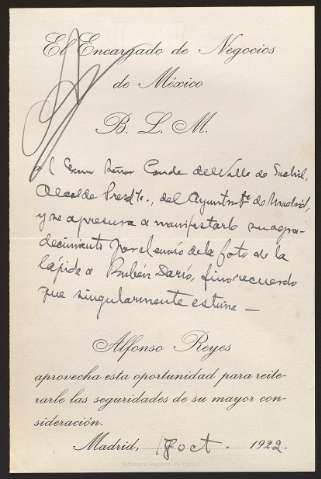 El Encargado de Negocios
de México
B. L. M.
al Excmo Señor Conde del Valle de Suchil,
Alcalde Presdte., del Ayuntmto de Madrid,
y se apresura a manifestarle su agra-
decimiento por el envío de la foto de la
lápida a Rubén Darío, fino recuerdo
que singularmente estima —
Alfonso Reyes
aprovecha esta oportunidad para reite-
rarle las seguridades de su mayor con-
sideración.
Madrid, oct. 1922.